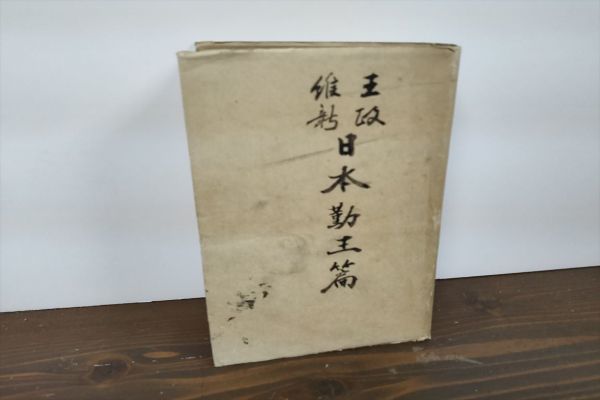 王政
維新
日本勤王篇